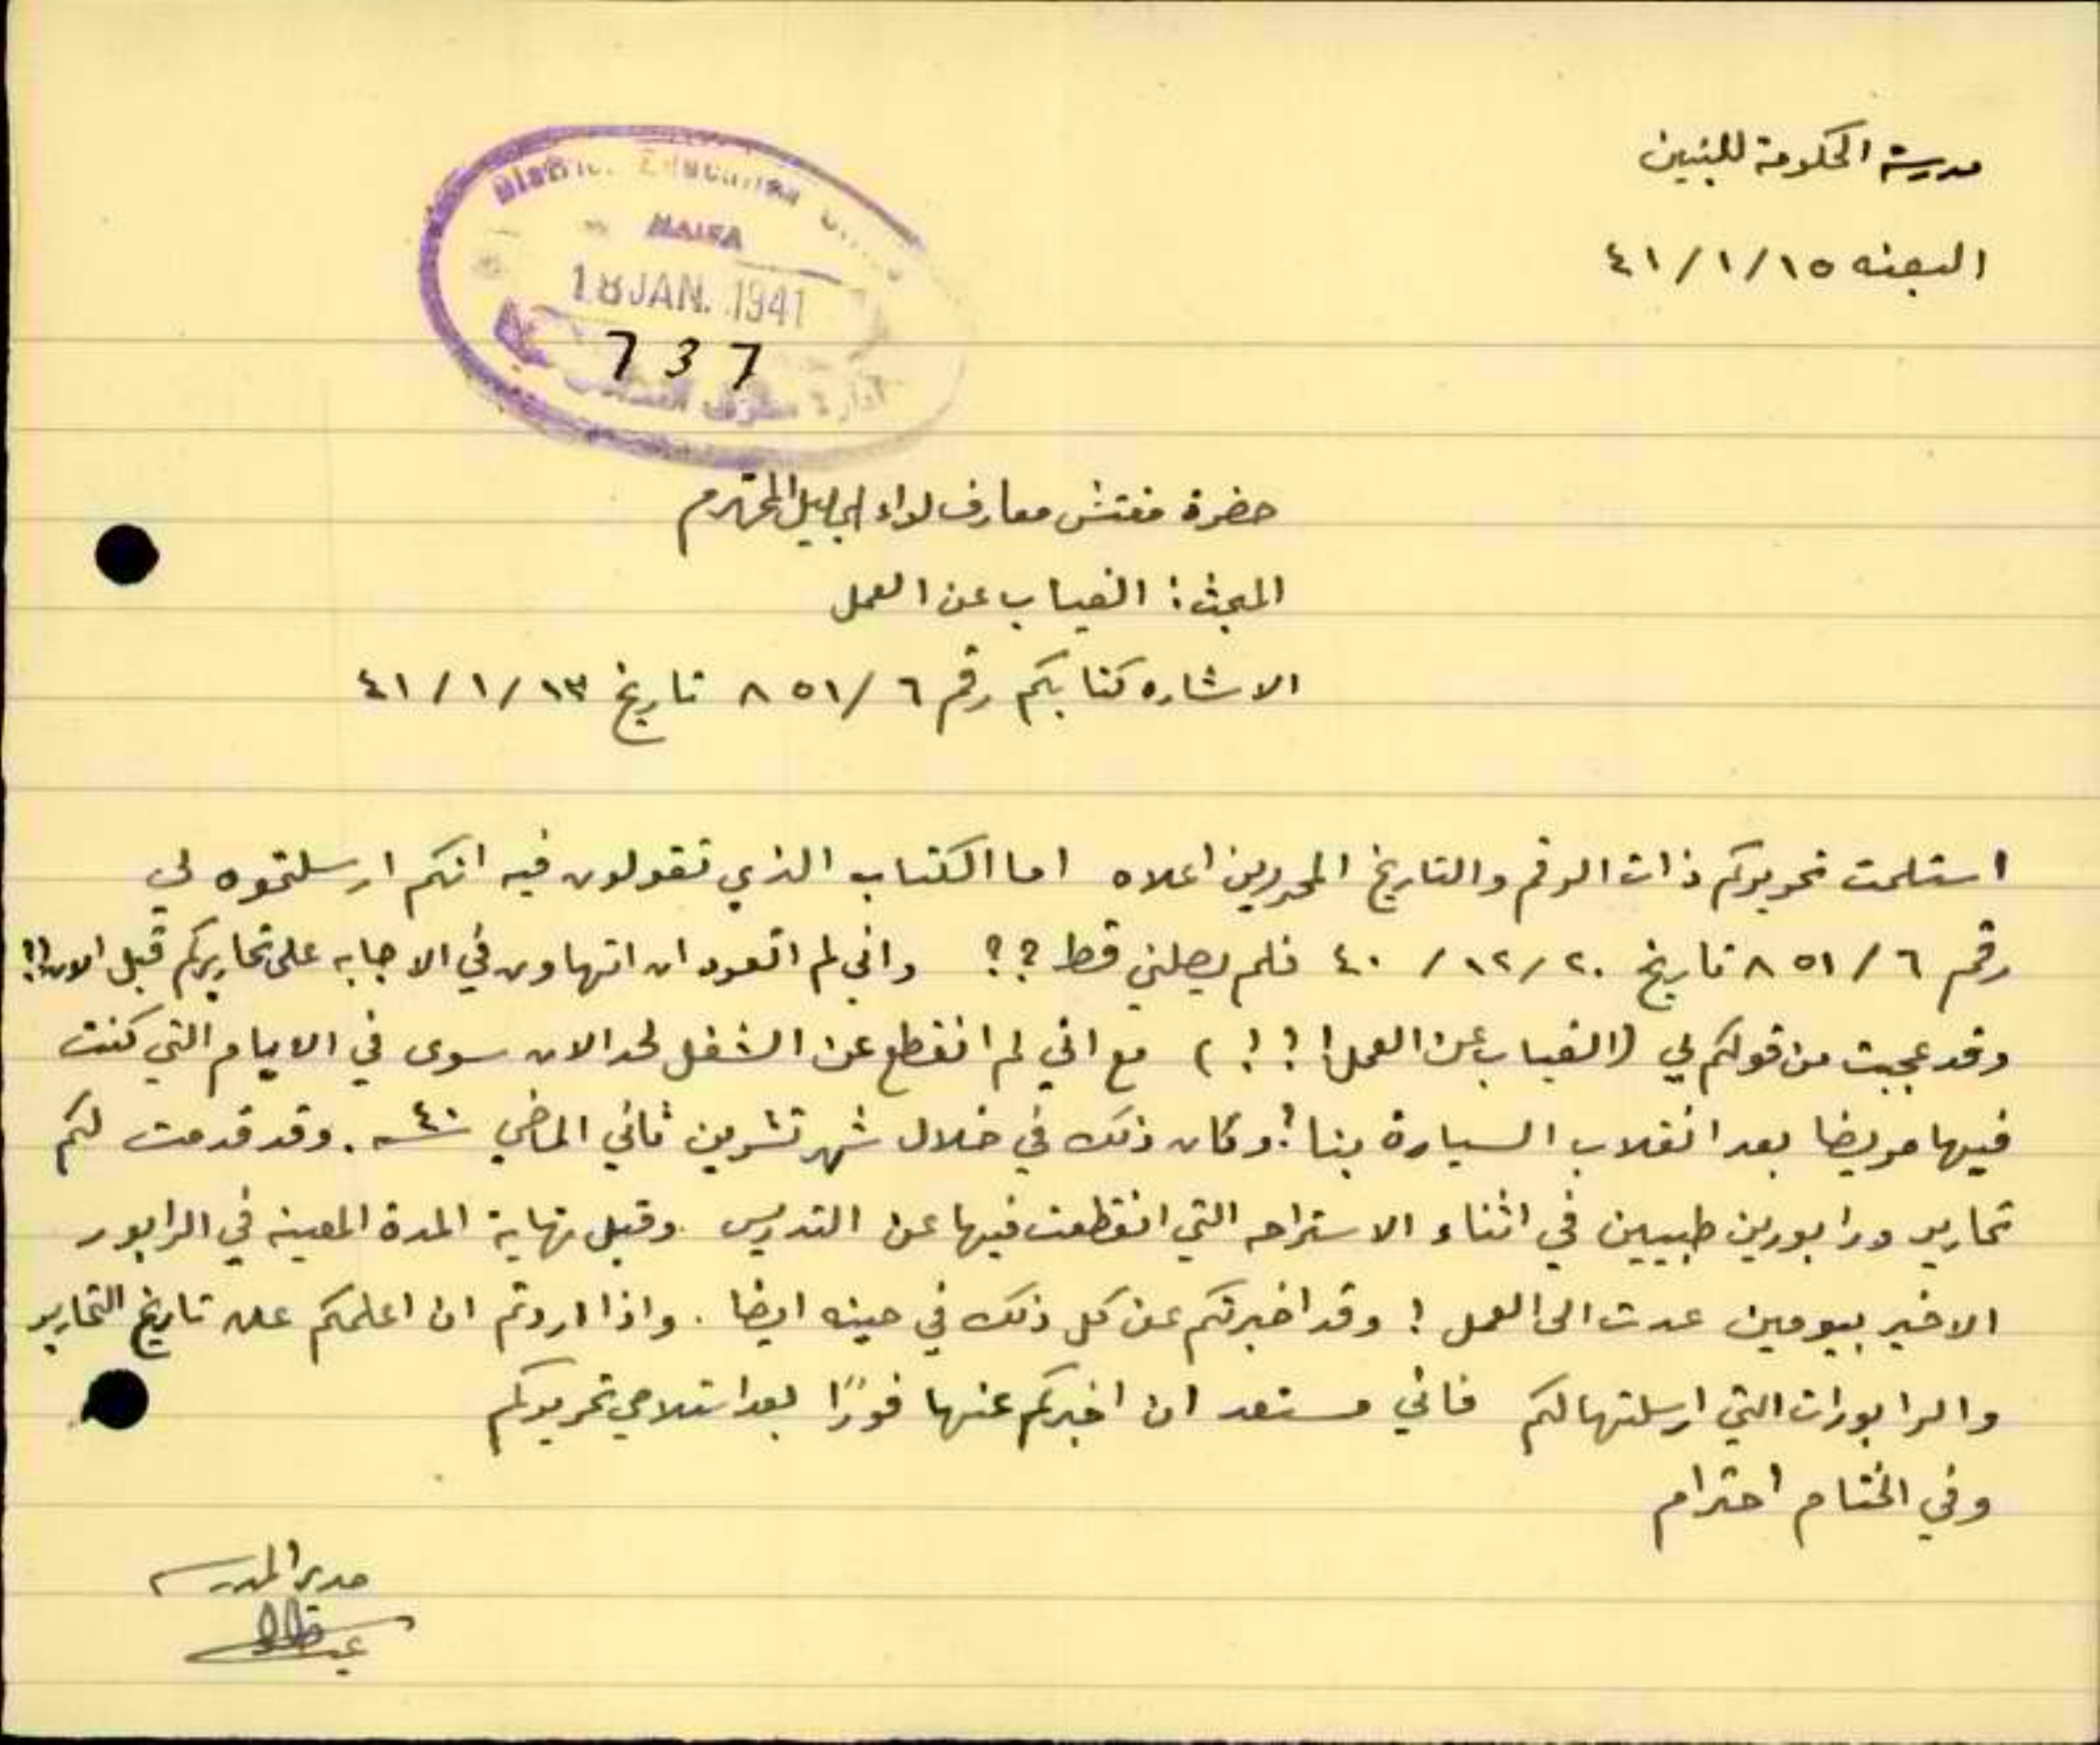 مدرسة الحكومة للبنين
البعنه ١٥/١/٤١
District Education
HAIFA
18 JAN. 1941
737
ادارة معارف
حضرة مفتش معارف لواء الجليل المحترم
المبحث: الغياب عن العمل
الاشاره كتابكم رقم ٦/٨٥١ تاريخ ١٣/١/٤١
استلمت تحريركم ذات الرقم والتاريخ المحررين اعلاه اما الكتاب الذي تقولون فيه انكم ارسلتموه لي
رقم ٦/٨٥١ تاريخ ٢٠/١٢/٤٠ فلم يصلني قط؟؟ واني لم اتعود ان اتهاون في الاجابه على تحاريركم قبل الان!!
وقد عجبت من قولكم لي (الغياب عن العمل!؟!) مع اني لم انقطع عن الشغل لحد الان سوى في الايام التي كنت
فيها مريضا بعد انقلاب السيارة بنا؟ وكان ذلك في خلال شهر تشرين ثاني الماضي سنة ٤٠. وقد قدمت لكم
تحارير ورابورين طبيين في اثناء الاستراحه التي انقطعت فيها عن التدريس وقبل نهاية المدة المعينه في الرابور
الاخير بيومين عدت الى العمل! وقد اخبرتكم عن كل ذلك في حينه ايضا. واذا اردتم ان اعلمكم عن تاريخ التحارير
والرابورات التي ارسلتها لكم فاني مستعد ان اخبركم عنها فورًا بعد استلامي تحريركم
وفي الختام احترام
مدير المدرسه